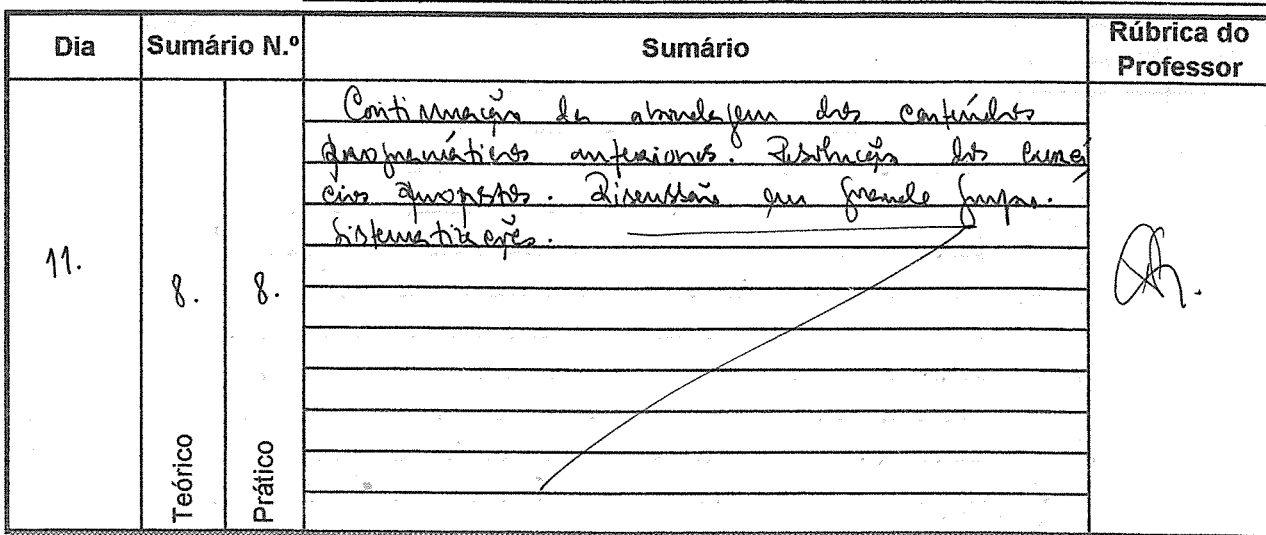 Dia Sumário N.º Sumário Rúbrica do Professor
Continuação da abordagem dos conteúdos
programáticos anteriores. Resolução dos exercí
cios propostos. Discussão em grande grupo.
Sistematizações.
11. 8. 8.
Teórico Prático